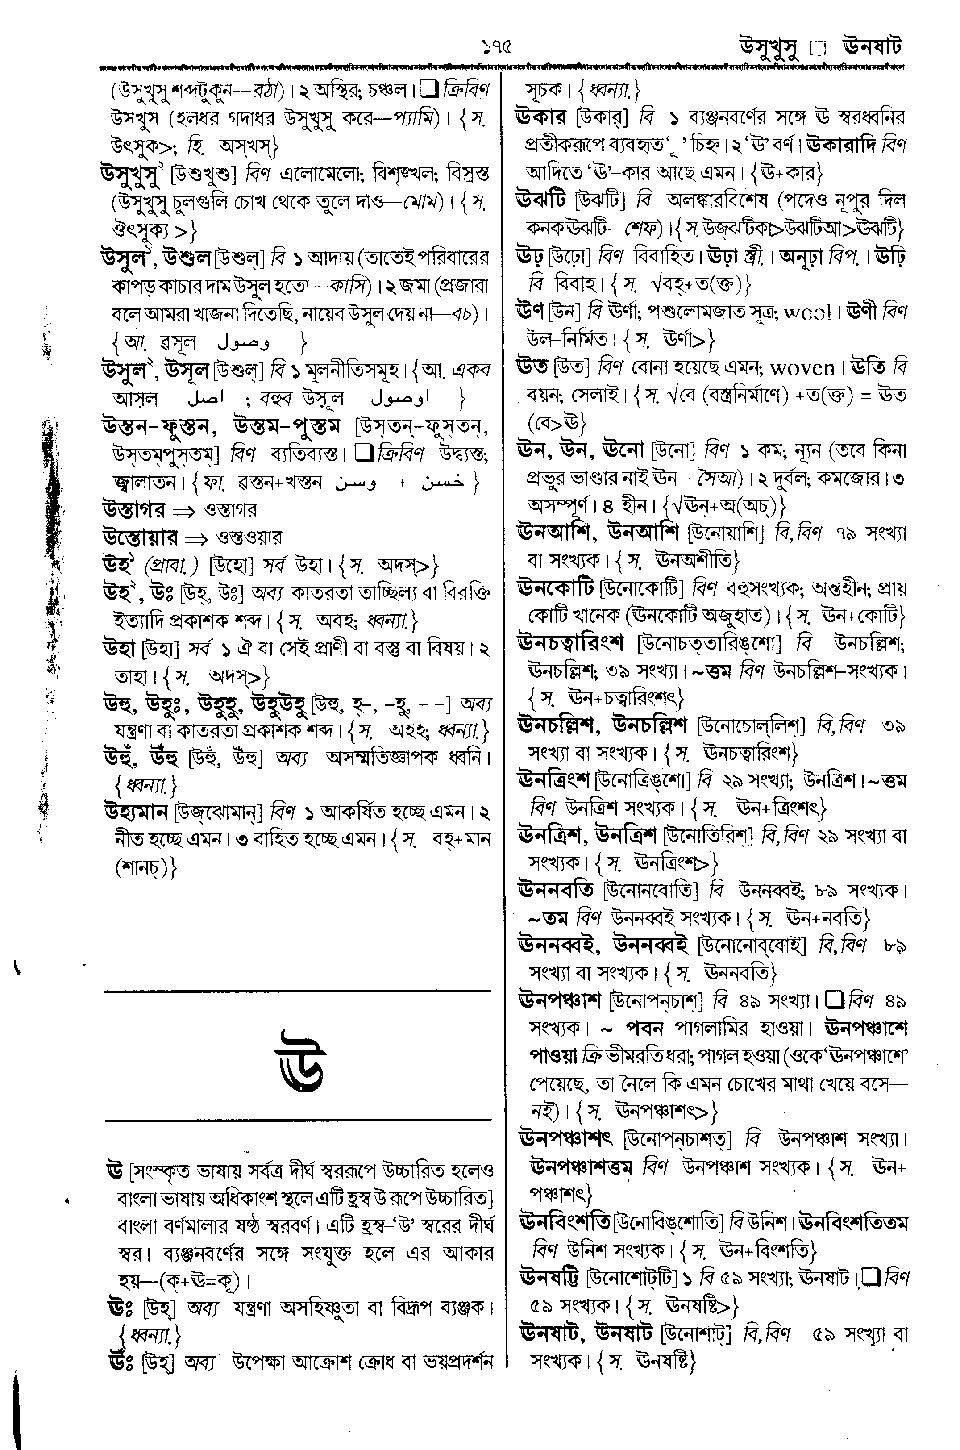 ১৭৫
উসুখুসু □ ঊনষাট
(উসুখুসু শব্দটুকুন—রঠা)। ২ অস্থির; চঞ্চল। □ ক্রিবিণ
উসখুস (হলধর গদাধর উসুখুসু করে—প্যামি)। {স.
উৎসুক>; হি. অসখস}
উসুখুসু২ [উশুখুশু] বিণ এলোমেলো; বিশৃঙ্খল; বিস্রস্ত
(উসুখুসু চুলগুলি চোখ থেকে তুলে দাও—মোম)। {স.
ঔৎসুক্য >}
উসুল১, উশুল [উশুল্] বি ১ আদায় (তাতেই পরিবারের
কাপড় কাচার দাম উসুল হতো—কাসি)। ২ জমা (প্রজারা
বলে আমরা খাজনা দিতেছি, নায়েব উসুল দেয় না—বচ)।
{আ. ৱসূল وصول }
উসুল২, উসূল [উশুল্] বি ১ মূলনীতিসমূহ। {আ. একব
আস্‌ল اصل ; বহুব উসূল اوصول }
উস্তন-ফুস্তন, উস্তম-পুস্তম [উস্‌তন্-ফুস্‌তন্,
উস্‌তম্‌পুস্‌তম্] বিণ ব্যতিব্যস্ত। □ ক্রিবিণ উদ্ব্যস্ত;
জ্বালাতন। {ফা. ৱস্তন+খস্তন وسن + خسن }
উস্তাগর ⇒ ওস্তাগর
উস্তোয়ার ⇒ ওস্তওয়ার
উহ১ (প্রাবা.) [উহো] সর্ব উহা। {স. অদস্>}
উহ২, উঃ [উহ্, উঃ] অব্য কাতরতা তাচ্ছিল্য বা বিরক্তি
ইত্যাদি প্রকাশক শব্দ। {স. অবহ; ধ্বন্যা.}
উহা [উহা] সর্ব ১ ঐ বা সেই প্রাণী বা বস্তু বা বিষয়। ২
তাহা। {স. অদস্>}
উহু, উহুঃ, উহুহু, উহুউহু [উহু, হ্‌-, -হু, - -] অব্য
যন্ত্রণা বা কাতরতা প্রকাশক শব্দ। {স. অহহ; ধ্বন্যা.}
উহুঁ, উঁহু [উহুঁ, উঁহু] অব্য অসম্মতিজ্ঞাপক ধ্বনি।
{ধ্বন্যা.}
উহ্যমান [উজ্‌ঝোমান্] বিণ ১ আকর্ষিত হচ্ছে এমন। ২
নীত হচ্ছে এমন। ৩ বাহিত হচ্ছে এমন। {স. বহ্+মান
(শানচ্)}
ঊ
ঊ [সংস্কৃত ভাষায় সর্বত্র দীর্ঘ স্বররূপে উচ্চারিত হলেও
বাংলা ভাষায় অধিকাংশ স্থলে এটি হ্রস্ব উ রূপে উচ্চারিত]
বাংলা বর্ণমালার ষষ্ঠ স্বরবর্ণ। এটি হ্রস্ব-‘উ’ স্বরের দীর্ঘ
স্বর। ব্যঞ্জনবর্ণের সঙ্গে সংযুক্ত হলে এর আকার
হয়—(ক্+ঊ=কূ)।
ঊঃ [উহ্] অব্য যন্ত্রণা অসহিষ্ণুতা বা বিদ্রূপ ব্যঞ্জক।
{ধ্বন্যা.}
ঊঁঃ [উহ্] অব্য উপেক্ষা আক্রোশ ক্রোধ বা ভয়প্রদর্শন
সূচক। {ধ্বন্যা.}
ঊকার [উকার্] বি ১ ব্যঞ্জনবর্ণের সঙ্গে ঊ স্বরধ্বনির
প্রতীকরূপে ব্যবহৃত ‘ূ’ চিহ্ন। ২ ‘ঊ’ বর্ণ। ঊকারাদি বিণ
আদিতে ‘ঊ’-কার আছে এমন। {ঊ+কার}
ঊঝটি [উঝটি] বি অলঙ্কারবিশেষ (পদেও নূপুর দিল
কনক ঊঝটি- শেফ)। {স. উজ্ঝটিকা>উঝটিআ>ঊঝটি}
ঊঢ় [উঢ়ো] বিণ বিবাহিত। ঊঢ়া স্ত্রী.। অনূঢ়া বিপ.। ঊঢ়ি
বি বিবাহ। {স. √বহ্+ত(ক্ত)}
ঊণ [উন] বি ঊর্ণা; পশুলোমজাত সূত্র; wool। ঊণী বিণ
উল-নির্মিত। {স. ঊর্ণা>}
ঊত [উত] বিণ বোনা হয়েছে এমন; woven। ঊতি বি
বয়ন; সেলাই। {স. √বে (বস্ত্রনির্মাণে) +ত(ক্ত) = ঊত
(বে>ঊ)}
ঊন, উন, ঊনো [উনো] বিণ ১ কম; ন্যূন (তবে কিনা
প্রভুর ভাণ্ডার নাই ঊন - সৈআ)। ২ দুর্বল; কমজোর। ৩
অসম্পূর্ণ। ৪ হীন। {√ঊন্+অ(অচ্)}
ঊনআশি, উনআশি [উনোয়াশি] বি,বিণ ৭৯ সংখ্যা
বা সংখ্যক। {স. ঊনঅশীতি}
ঊনকোটি [উনোকোটি] বিণ বহুসংখ্যক; অন্তহীন; প্রায়
কোটি খানেক (ঊনকোটি অজুহাত)। {স. ঊন+কোটি}
ঊনচত্বারিংশ [উনোচত্‌তারিঙ্‌শো] বি উনচল্লিশ;
ঊনচল্লিশ; ৩৯ সংখ্যা। ~ত্তম বিণ উনচল্লিশ-সংখ্যক।
{স. ঊন+চত্বারিংশৎ}
ঊনচল্লিশ, উনচল্লিশ [উনোচোল্‌লিশ্] বি,বিণ ৩৯
সংখ্যা বা সংখ্যক। {স. ঊনচত্বারিংশ}
ঊনত্রিংশ [উনোত্রিঙ্‌শো] বি ২৯ সংখ্যা; উনত্রিশ। ~ত্তম
বিণ উনত্রিশ সংখ্যক। {স. ঊন+ত্রিংশৎ}
ঊনত্রিশ, উনত্রিশ [উনোতিরিশ্] বি,বিণ ২৯ সংখ্যা বা
সংখ্যক। {স. ঊনত্রিংশ>}
ঊননবতি [উনোনবোতি] বি উননব্বই; ৮৯ সংখ্যক।
~তম বিণ উননব্বই সংখ্যক। {স. ঊন+নবতি}
ঊননব্বই, উননব্বই [উনোনোব্‌বোই] বি,বিণ ৮৯
সংখ্যা বা সংখ্যক। {স. ঊননবতি}
ঊনপঞ্চাশ [উনোপন্‌চাশ্] বি ৪৯ সংখ্যা। □ বিণ ৪৯
সংখ্যক। ~ পবন পাগলামির হাওয়া। ঊনপঞ্চাশে
পাওয়া ক্রি ভীমরতি ধরা; পাগল হওয়া (ওকে ‘ঊনপঞ্চাশে’
পেয়েছে, তা নৈলে কি এমন চোখের মাথা খেয়ে বসে—
নই)। {স. ঊনপঞ্চাশৎ>}
ঊনপঞ্চাশৎ [উনোপন্‌চাশত্] বি ঊনপঞ্চাশ সংখ্যা।
ঊনপঞ্চাশত্তম বিণ ঊনপঞ্চাশ সংখ্যক। {স. ঊন+
পঞ্চাশৎ}
ঊনবিংশতি [উনোবিঙ্‌শোতি] বি উনিশ। ঊনবিংশতিতম
বিণ উনিশ সংখ্যক। {স. ঊন+বিংশতি}
ঊনষট্টি [উনোশোট্‌টি] ১ বি ৫৯ সংখ্যা; ঊনষাট। □ বিণ
৫৯ সংখ্যক। {স. ঊনষষ্টি>}
ঊনষাট, উনষাট [উনোশাট্] বি,বিণ ৫৯ সংখ্যা বা
সংখ্যক। {স. ঊনষষ্টি}